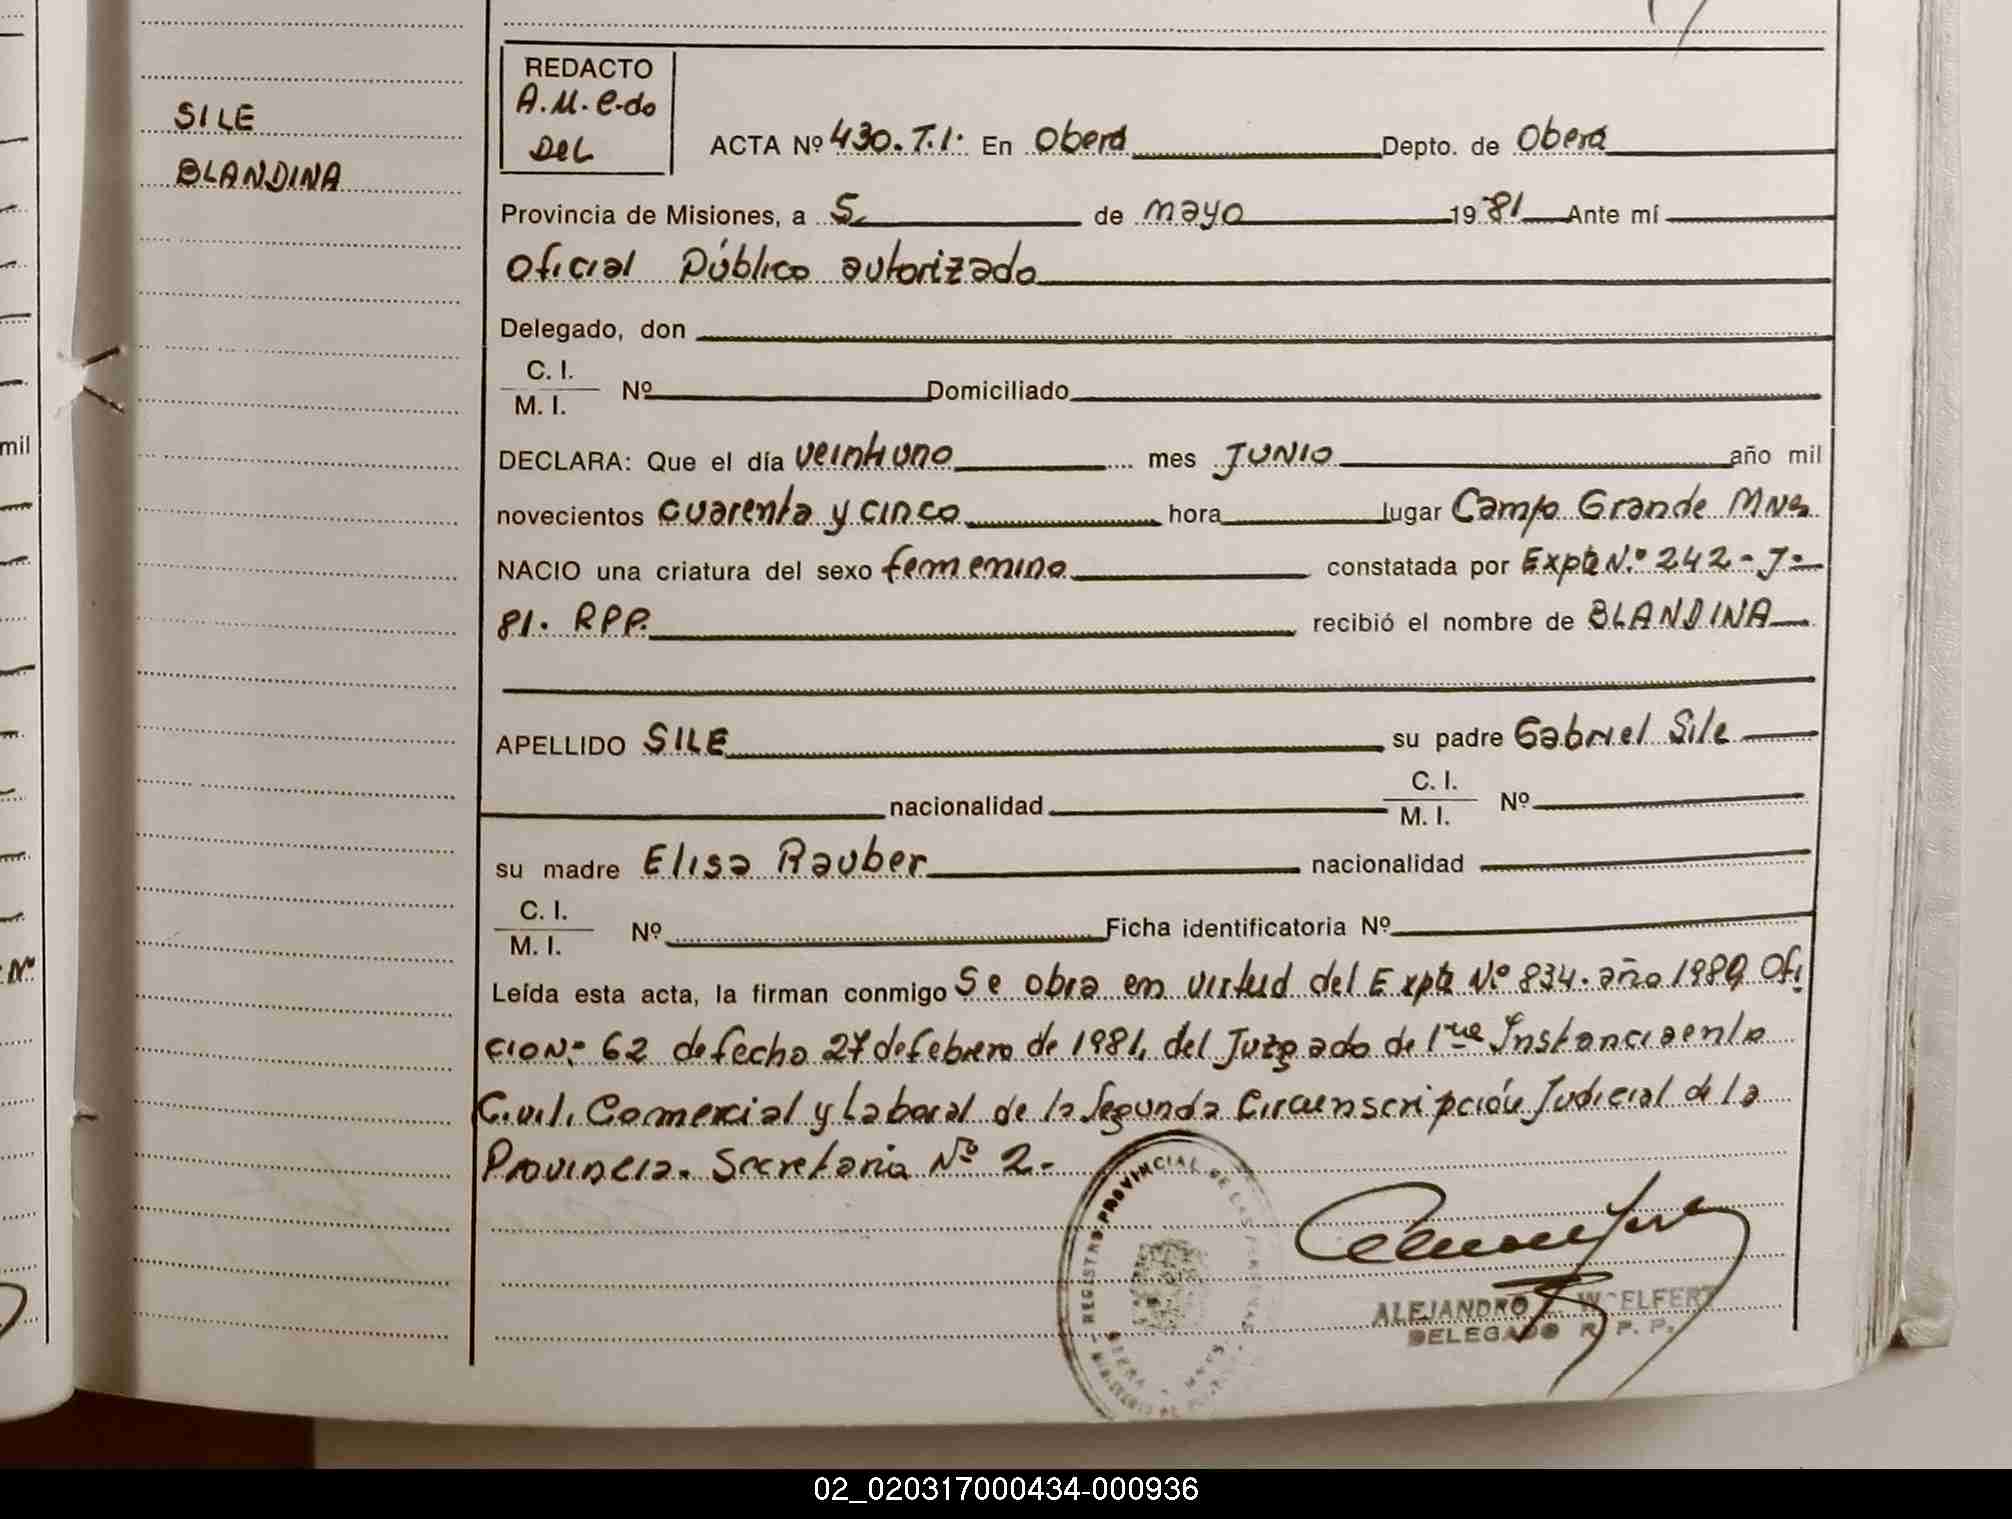 SILE
BLANDINA
REDACTO
A.M. e-do
DEL
ACTA Nº 430. T.I. En Oberá Depto. de Oberá
Provincia de Misiones, a 5 de mayo 1981 Ante mí
Oficial Público autorizado
Delegado, don
C. I.
M. I. Nº Domiciliado
DECLARA: Que el día veintiuno mes JUNIO año mil
novecientos cuarenta y cinco hora lugar Campo Grande Mnes
NACIO una criatura del sexo femenino constatada por Expte Nº 242 - J -
81. RPP. recibió el nombre de BLANDINA
APELLIDO SILE su padre Gabriel Sile
nacionalidad C. I.
M. I. Nº
su madre Elisa Rauber nacionalidad
C. I.
M. I. Nº Ficha identificatoria Nº
Leída esta acta, la firman conmigo Se obra en virtud del Expte Nº 834. año 1980 Ofi
cio Nº 62 de fecha 27 de febrero de 1981, del Juzgado de 1ra Instancia en lo
Civil, Comercial y Laboral de la Segunda Circunscripción Judicial de la
Provincia. Secretaria Nº 2.-
REGISTRO PROVINCIAL DE LAS PERSONAS
ALEJANDRO WOELFERT
DELEGADO R. P. P.
mil
Nº
02_020317000434-000936